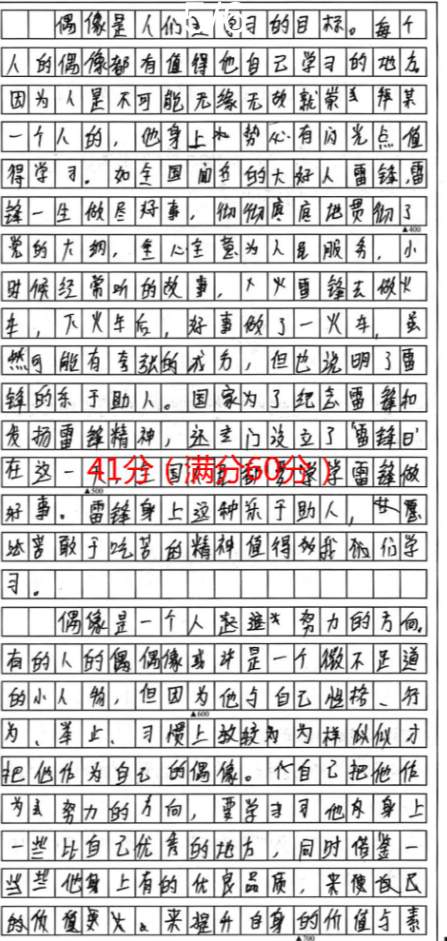 偶像是人们学习的目标。每个
人的偶像都有值得他自己学习的地方
因为人是不可能无缘无故就崇拜某
一个人的，他身上必有闪光点值
得学习。如全国闻名的大好人雷锋，雷
锋一生做尽好事，彻彻底底地贯彻了
党的大纲，全心全意为人民服务，小
时候经常听的故事，雷锋去做火
车，下火车后，好事做了一火车，虽
然可能有夸张的成分，但也说明了雷
锋的乐于助人。国家为了纪念雷锋和
发扬雷锋精神，还专门设立了"雷锋日"
在这一学雷锋做
41分（满分60分）
好事。雷锋身上这种乐于助人，
敢于吃苦的精神值得我们学
习。
偶像是一个人努力的方向。
有的人的偶偶像或许是一个微不足道
的小人物，但因为他与自己性格、行
为、举止、习惯上较为相似才
把他作为自己的偶像。自己把他作
为努力的方向，要学习他身上
一些比自己优秀的地方，同时借鉴一
些他身上有的优良品质，来使自己
的价值更大、来提升自身的价值与素
▲400
▲500
▲600
▲700